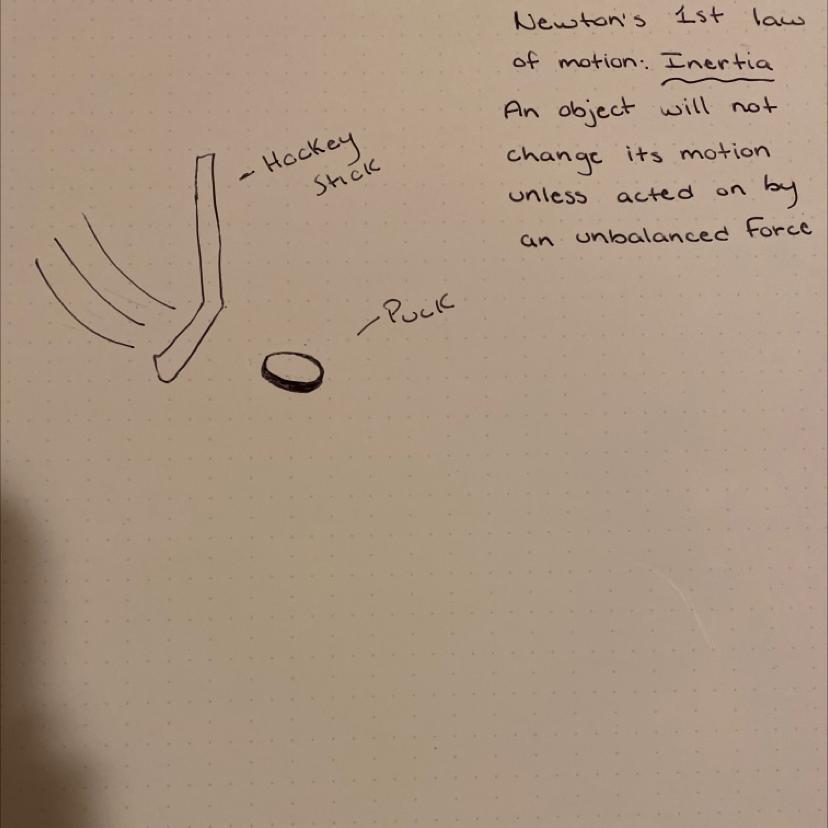 Newton's 1st law
of motion: Inertia
An object will not
change its motion
unless acted on by
an unbalanced force
- Hockey
Stick
- Puck